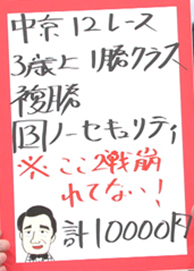 中京12レース
3歳上1勝クラス
複勝
13ノーセキュリティ
※ここ2戦崩
れてない!
計10000円